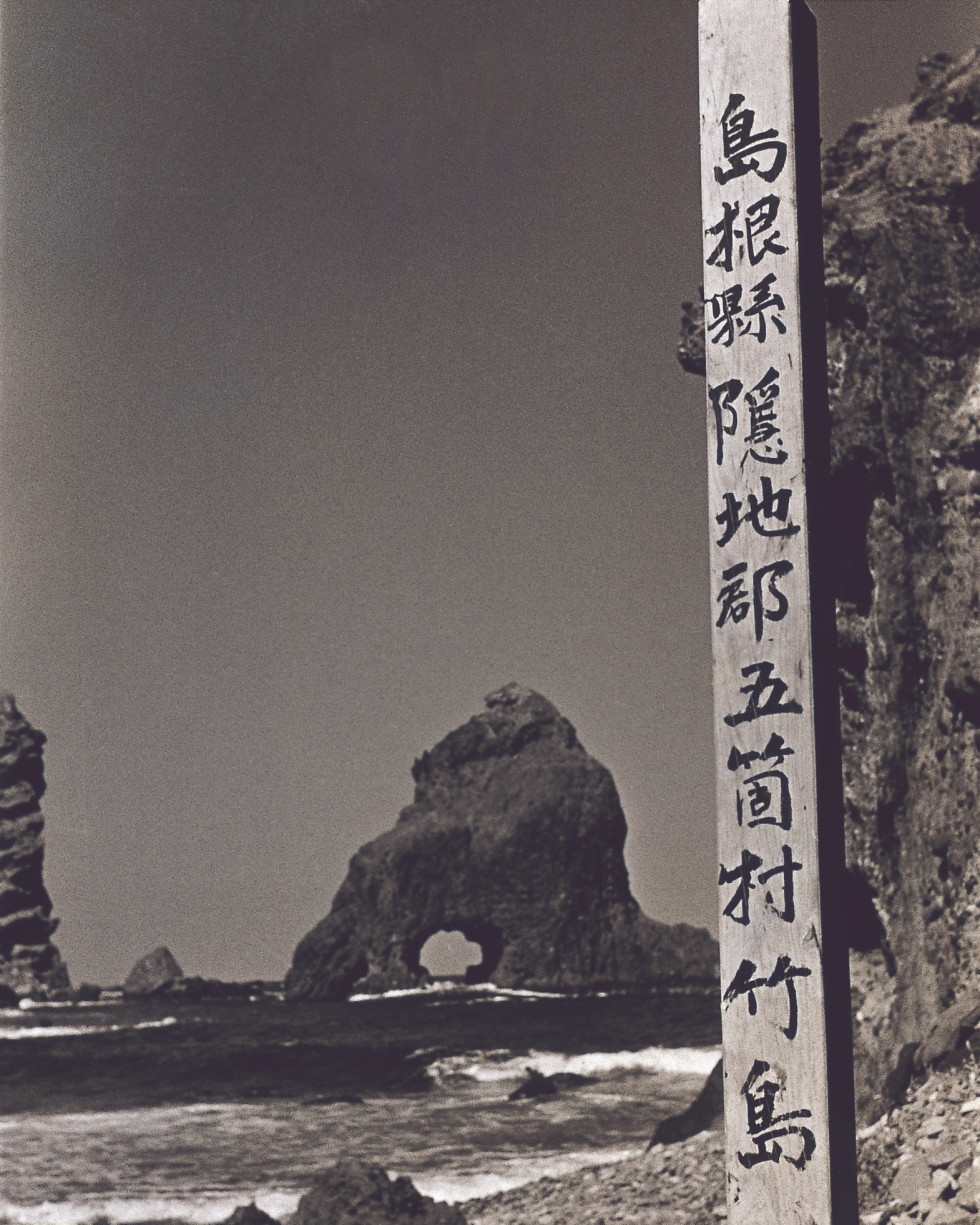 島根縣隱地郡五箇村竹島